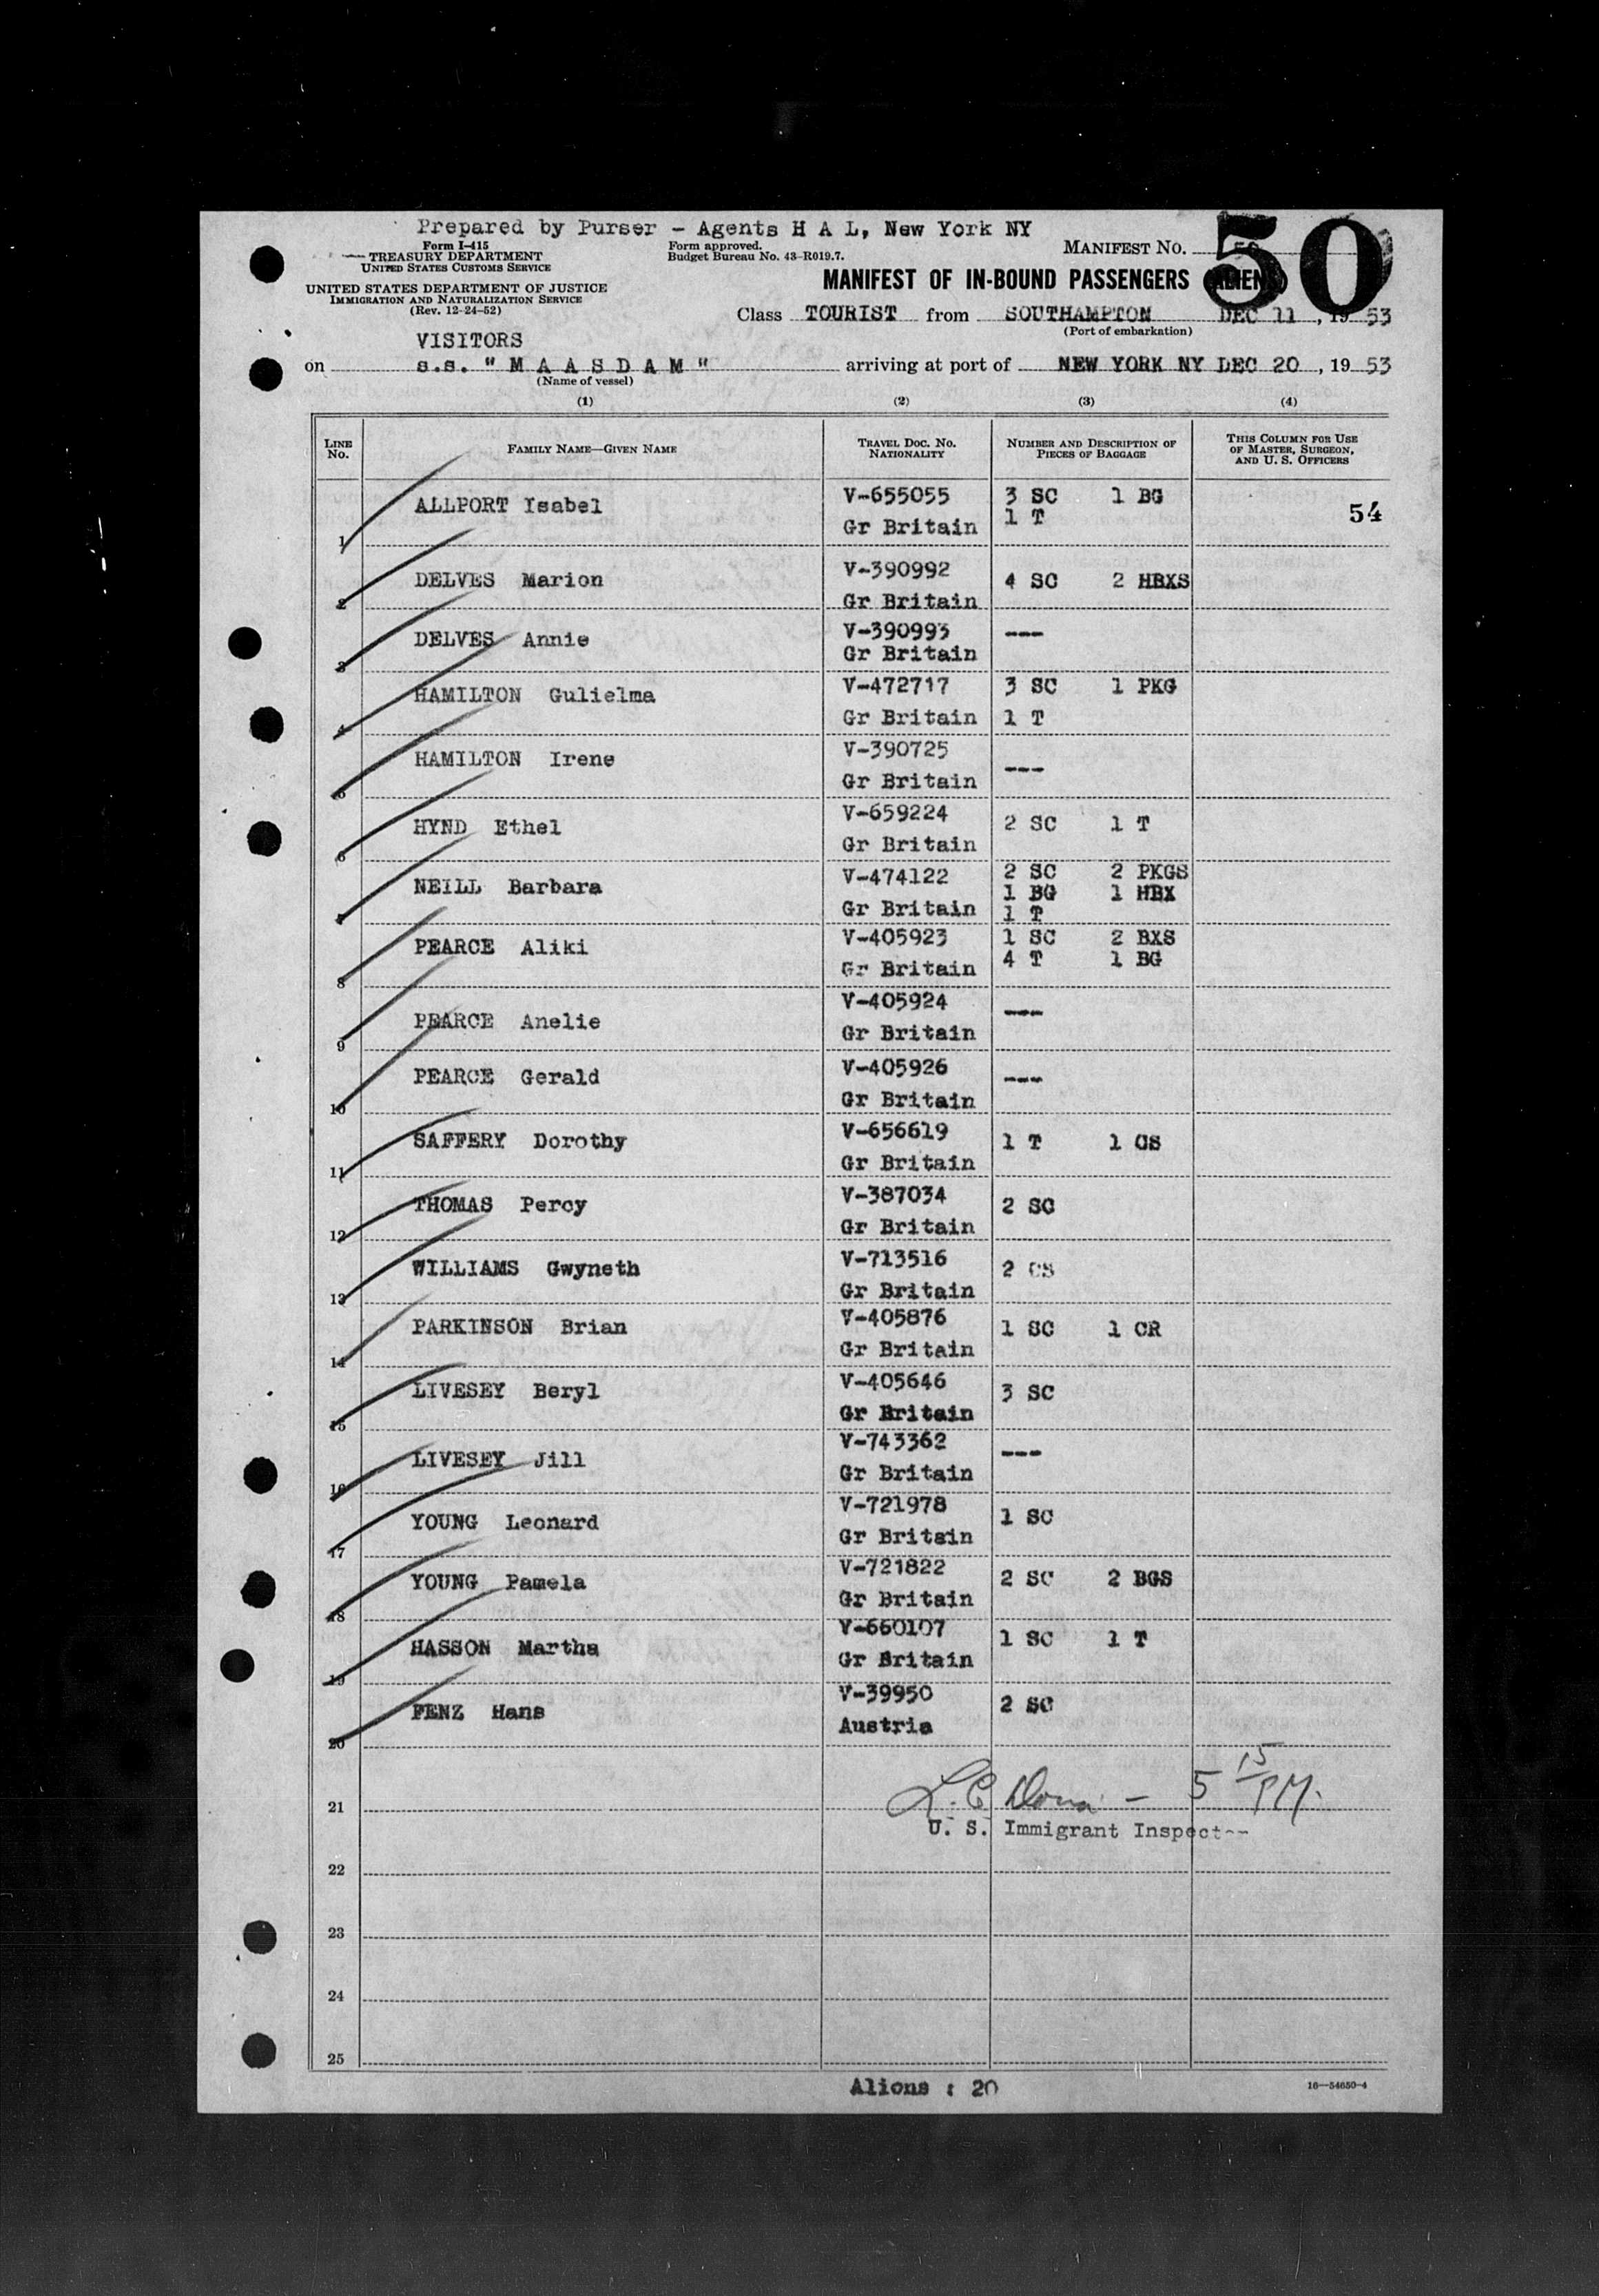 Prepared by Purser - Agents H A L, New York NY
Form I-415
TREASURY DEPARTMENT
UNITED STATES CUSTOMS SERVICE
UNITED STATES DEPARTMENT OF JUSTICE
IMMIGRATION AND NATURALIZATION SERVICE
(Rev. 12-24-52)
Form approved.
Budget Bureau No. 43-R019.7.
MANIFEST NO. 50
MANIFEST OF IN-BOUND PASSENGERS (ALIENS)
Class TOURIST from SOUTHAMPTON DEC 11, 1953
(Port of embarkation)
VISITORS
on s.s. "M A A S D A M" arriving at port of NEW YORK NY DEC 20, 1953
(Name of vessel)
(1) (2) (3) (4)
LINE No. FAMILY NAME—GIVEN NAME TRAVEL DOC. NO. NATIONALITY NUMBER AND DESCRIPTION OF PIECES OF BAGGAGE THIS COLUMN FOR USE OF MASTER, SURGEON, AND U. S. OFFICERS
1 ALLPORT Isabel V-655055 Gr Britain 3 SC 1 BG 1 T 54
2 DELVES Marion V-390992 Gr Britain 4 SC 2 HBXS
3 DELVES Annie V-390993 Gr Britain ---
4 HAMILTON Gulielma V-472717 Gr Britain 3 SC 1 PKG 1 T
5 HAMILTON Irene V-390725 Gr Britain ---
6 HYND Ethel V-659224 Gr Britain 2 SC 1 T
7 NEILL Barbara V-474122 Gr Britain 2 SC 2 PKGS 1 BG 1 HBX 1 T
8 PEARCE Aliki V-405923 Gr Britain 1 SC 2 BXS 4 T 1 BG
9 PEARCE Anelie V-405924 Gr Britain ---
10 PEARCE Gerald V-405926 Gr Britain ---
11 SAFFERY Dorothy V-656619 Gr Britain 1 T 1 CS
12 THOMAS Percy V-387034 Gr Britain 2 SC
13 WILLIAMS Gwyneth V-713516 Gr Britain 2 CS
14 PARKINSON Brian V-405876 Gr Britain 1 SC 1 CR
15 LIVESEY Beryl V-405646 Gr Britain 3 SC
16 LIVESEY Jill V-743362 Gr Britain ---
17 YOUNG Leonard V-721978 Gr Britain 1 SC
18 YOUNG Pamela V-721822 Gr Britain 2 SC 2 BGS
19 HASSON Martha V-660107 Gr Britain 1 SC 1 T
20 FENZ Hans V-39950 Austria 2 SC
21 L. C. - 5 15 PM.
U. S. Immigrant Inspect
22
23
24
25
Aliens : 20
16—54650-4